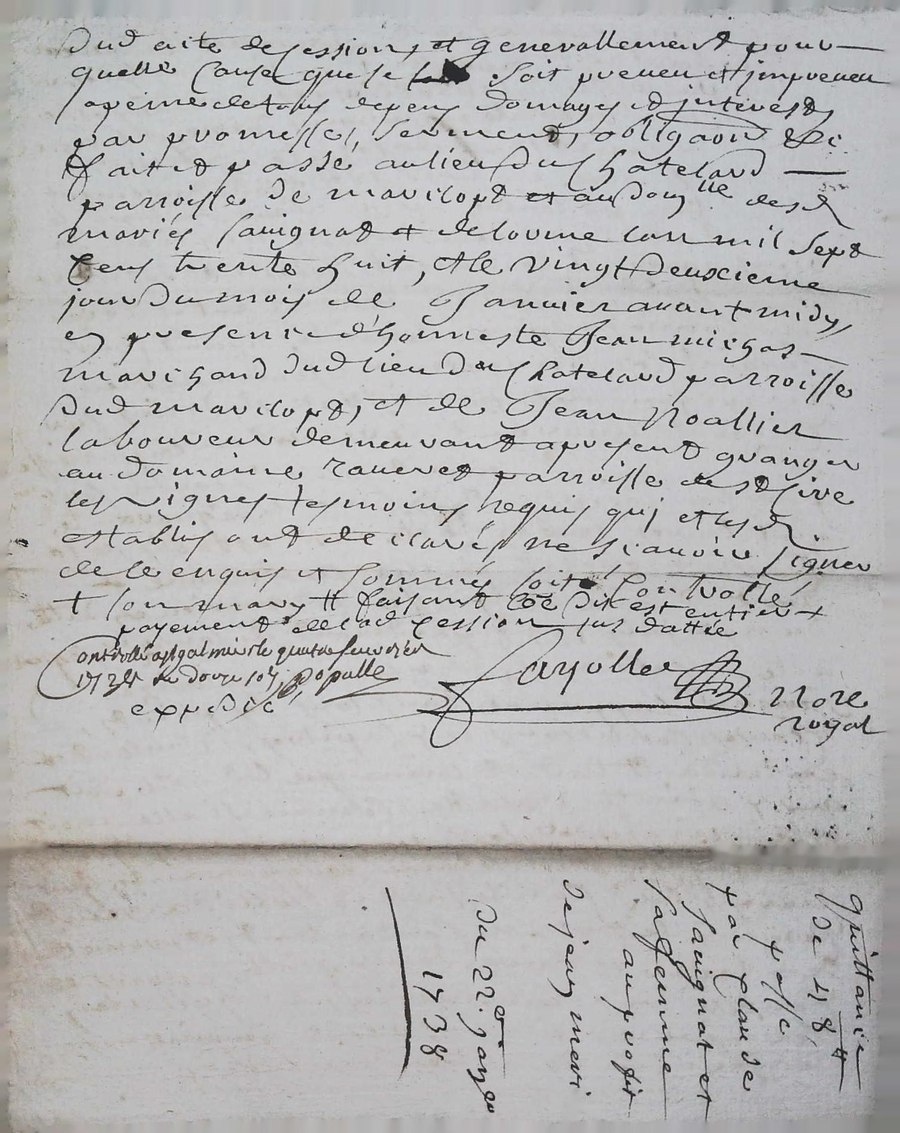 dud acte de cession, et generallement pour
quelle cause que se soit preveu et impreveu
a peine de tous depens domages et interests
par promesse, serment, obligaon &c
fait et passé au lieu du Chatelard
parroisse de marclopt et au domlle desd
mariés Savignat + delorme lan mil sept
cens trente huit, et le vingt deuxieme
jour du mois de Janvier avant midy,
en presence d'honneste Jean michas
marchand dud lieu du Chatelard parroisse
dud marclopt, et de Jean Noallier
laboureur demeurant apresent granger
au domaine raveret parroisse de st Cire
les vignes tesmoins requis qui et lesd
establis ont declarés ne scavoir signer
de ce enquis et sommés soit controllé
+ son mary # faisant lod dit est entier +
payement de lad cession sus dattée
Controllé a st galmier le quatre fevrier
1738 Re douze sols populle
expedié
Fayolle Nore
royal
quittance
de 48 #
passé
par Claude
Savignat et
sa femme
au profit
de jean meri
du 22e janer
1738